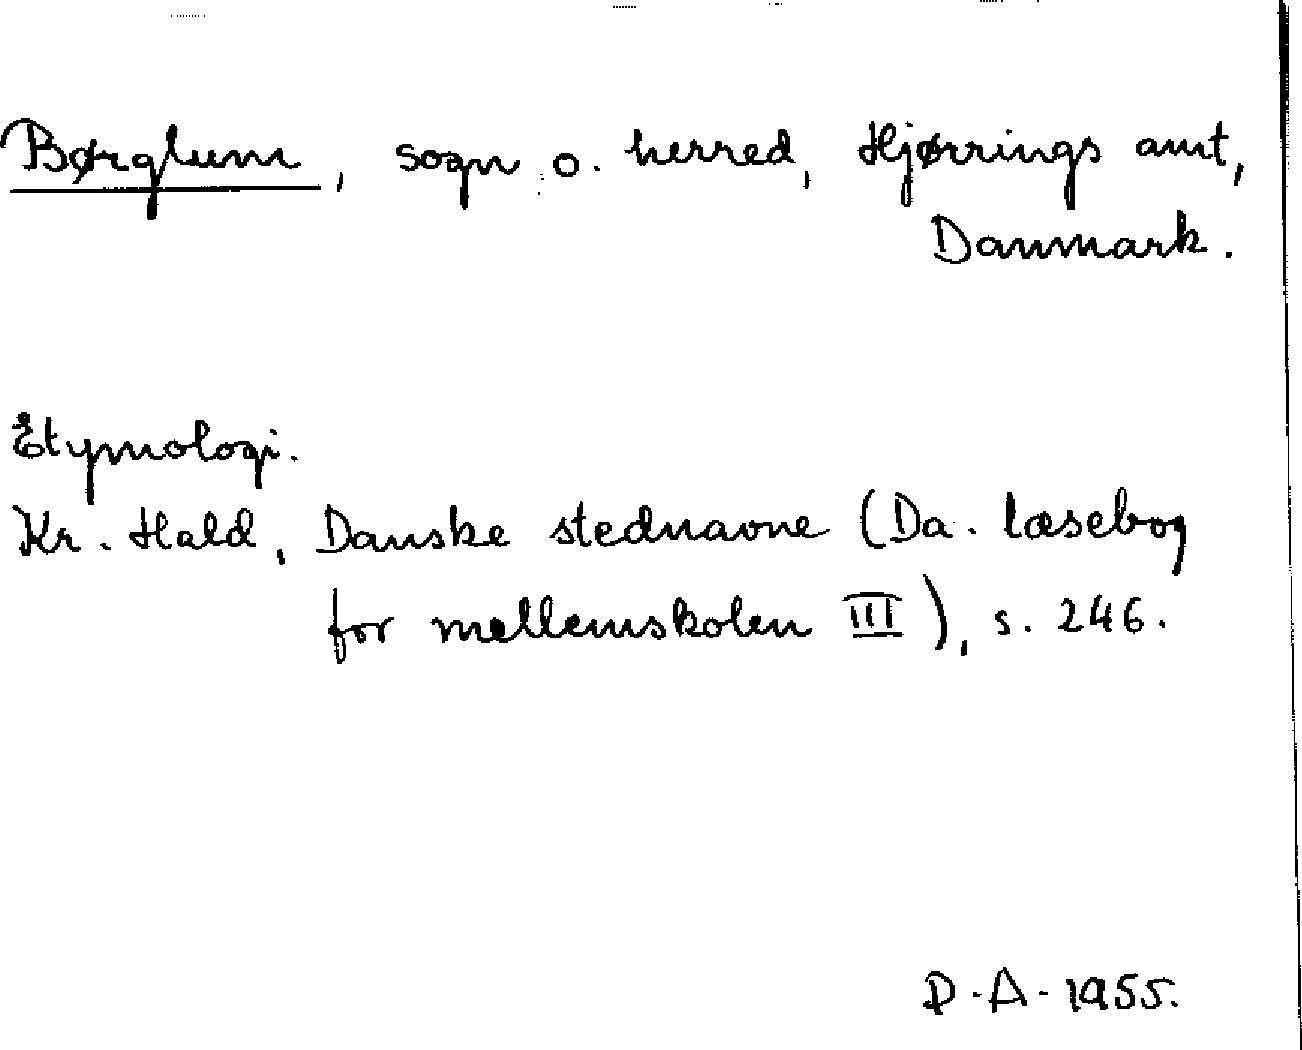 Børglum, sogn o. herred, Hjørrings amt,
Danmark.
Etymologi.
Kr. Hald, Danske stednavne (Da. læsebog
for mellemskolen III), s. 246.
P.A. 1955.